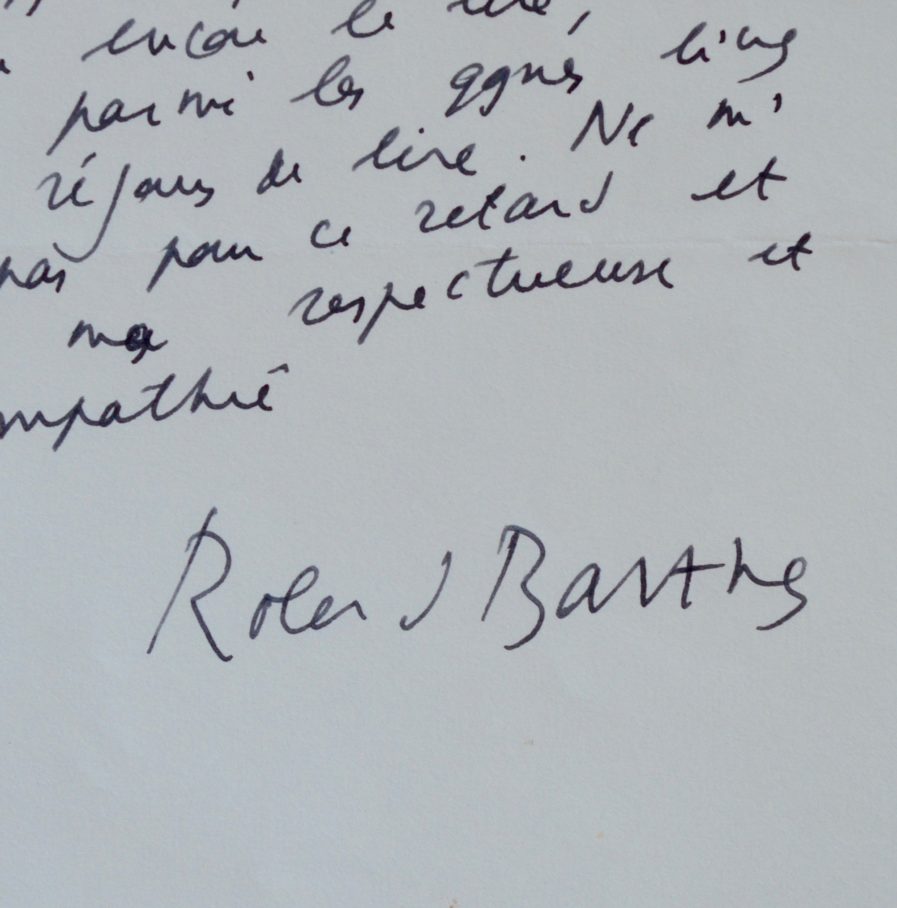 encore le lire,
parmi les qques livres
réjouis de lire. Ne m'
pas pour ce retard et
ma respectueuse et
mpathie
Roland Barthes